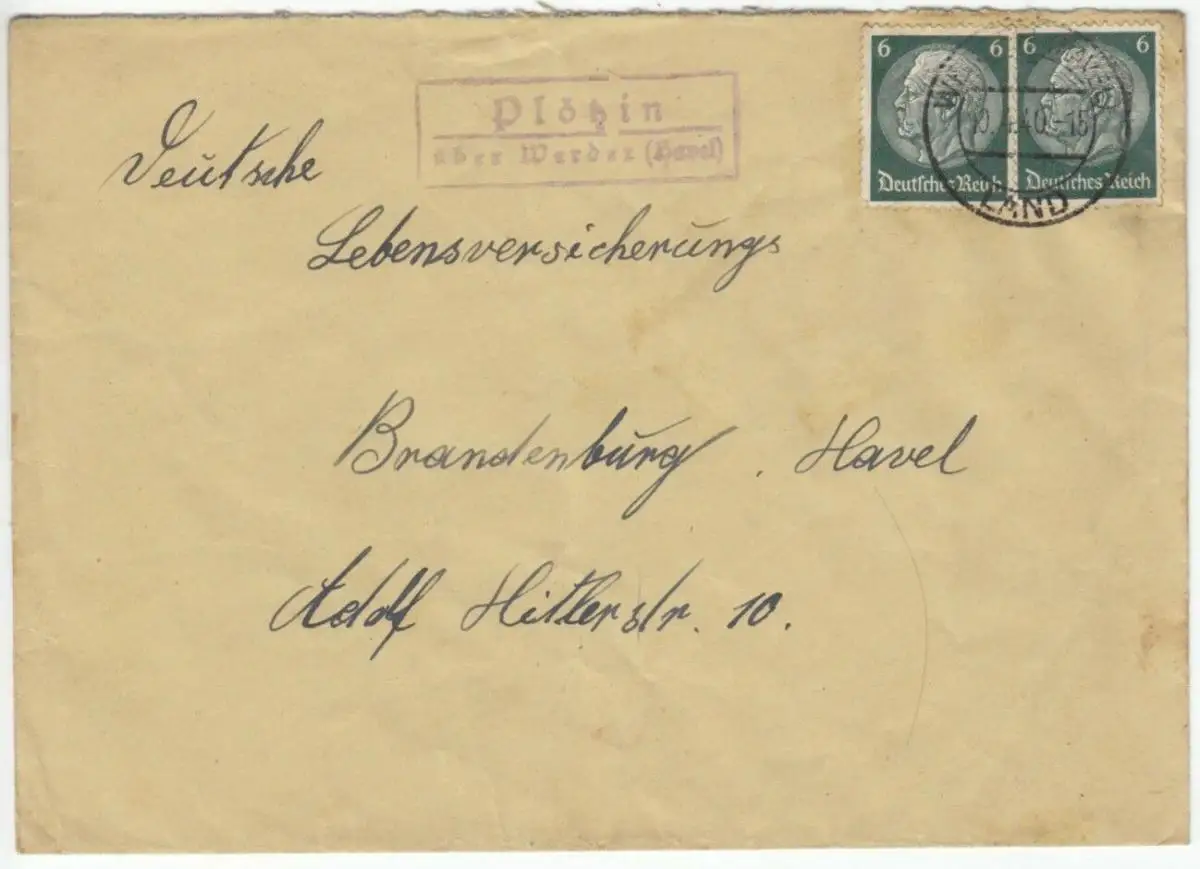 Plötzin
über Werder (Havel)
6 6 6 6
Deutsches Reich Deutsches Reich
40.-15
LAND
Deutsche
Lebensversicherungs
Brandenburg . Havel
Adolf Hitlerstr. 10.